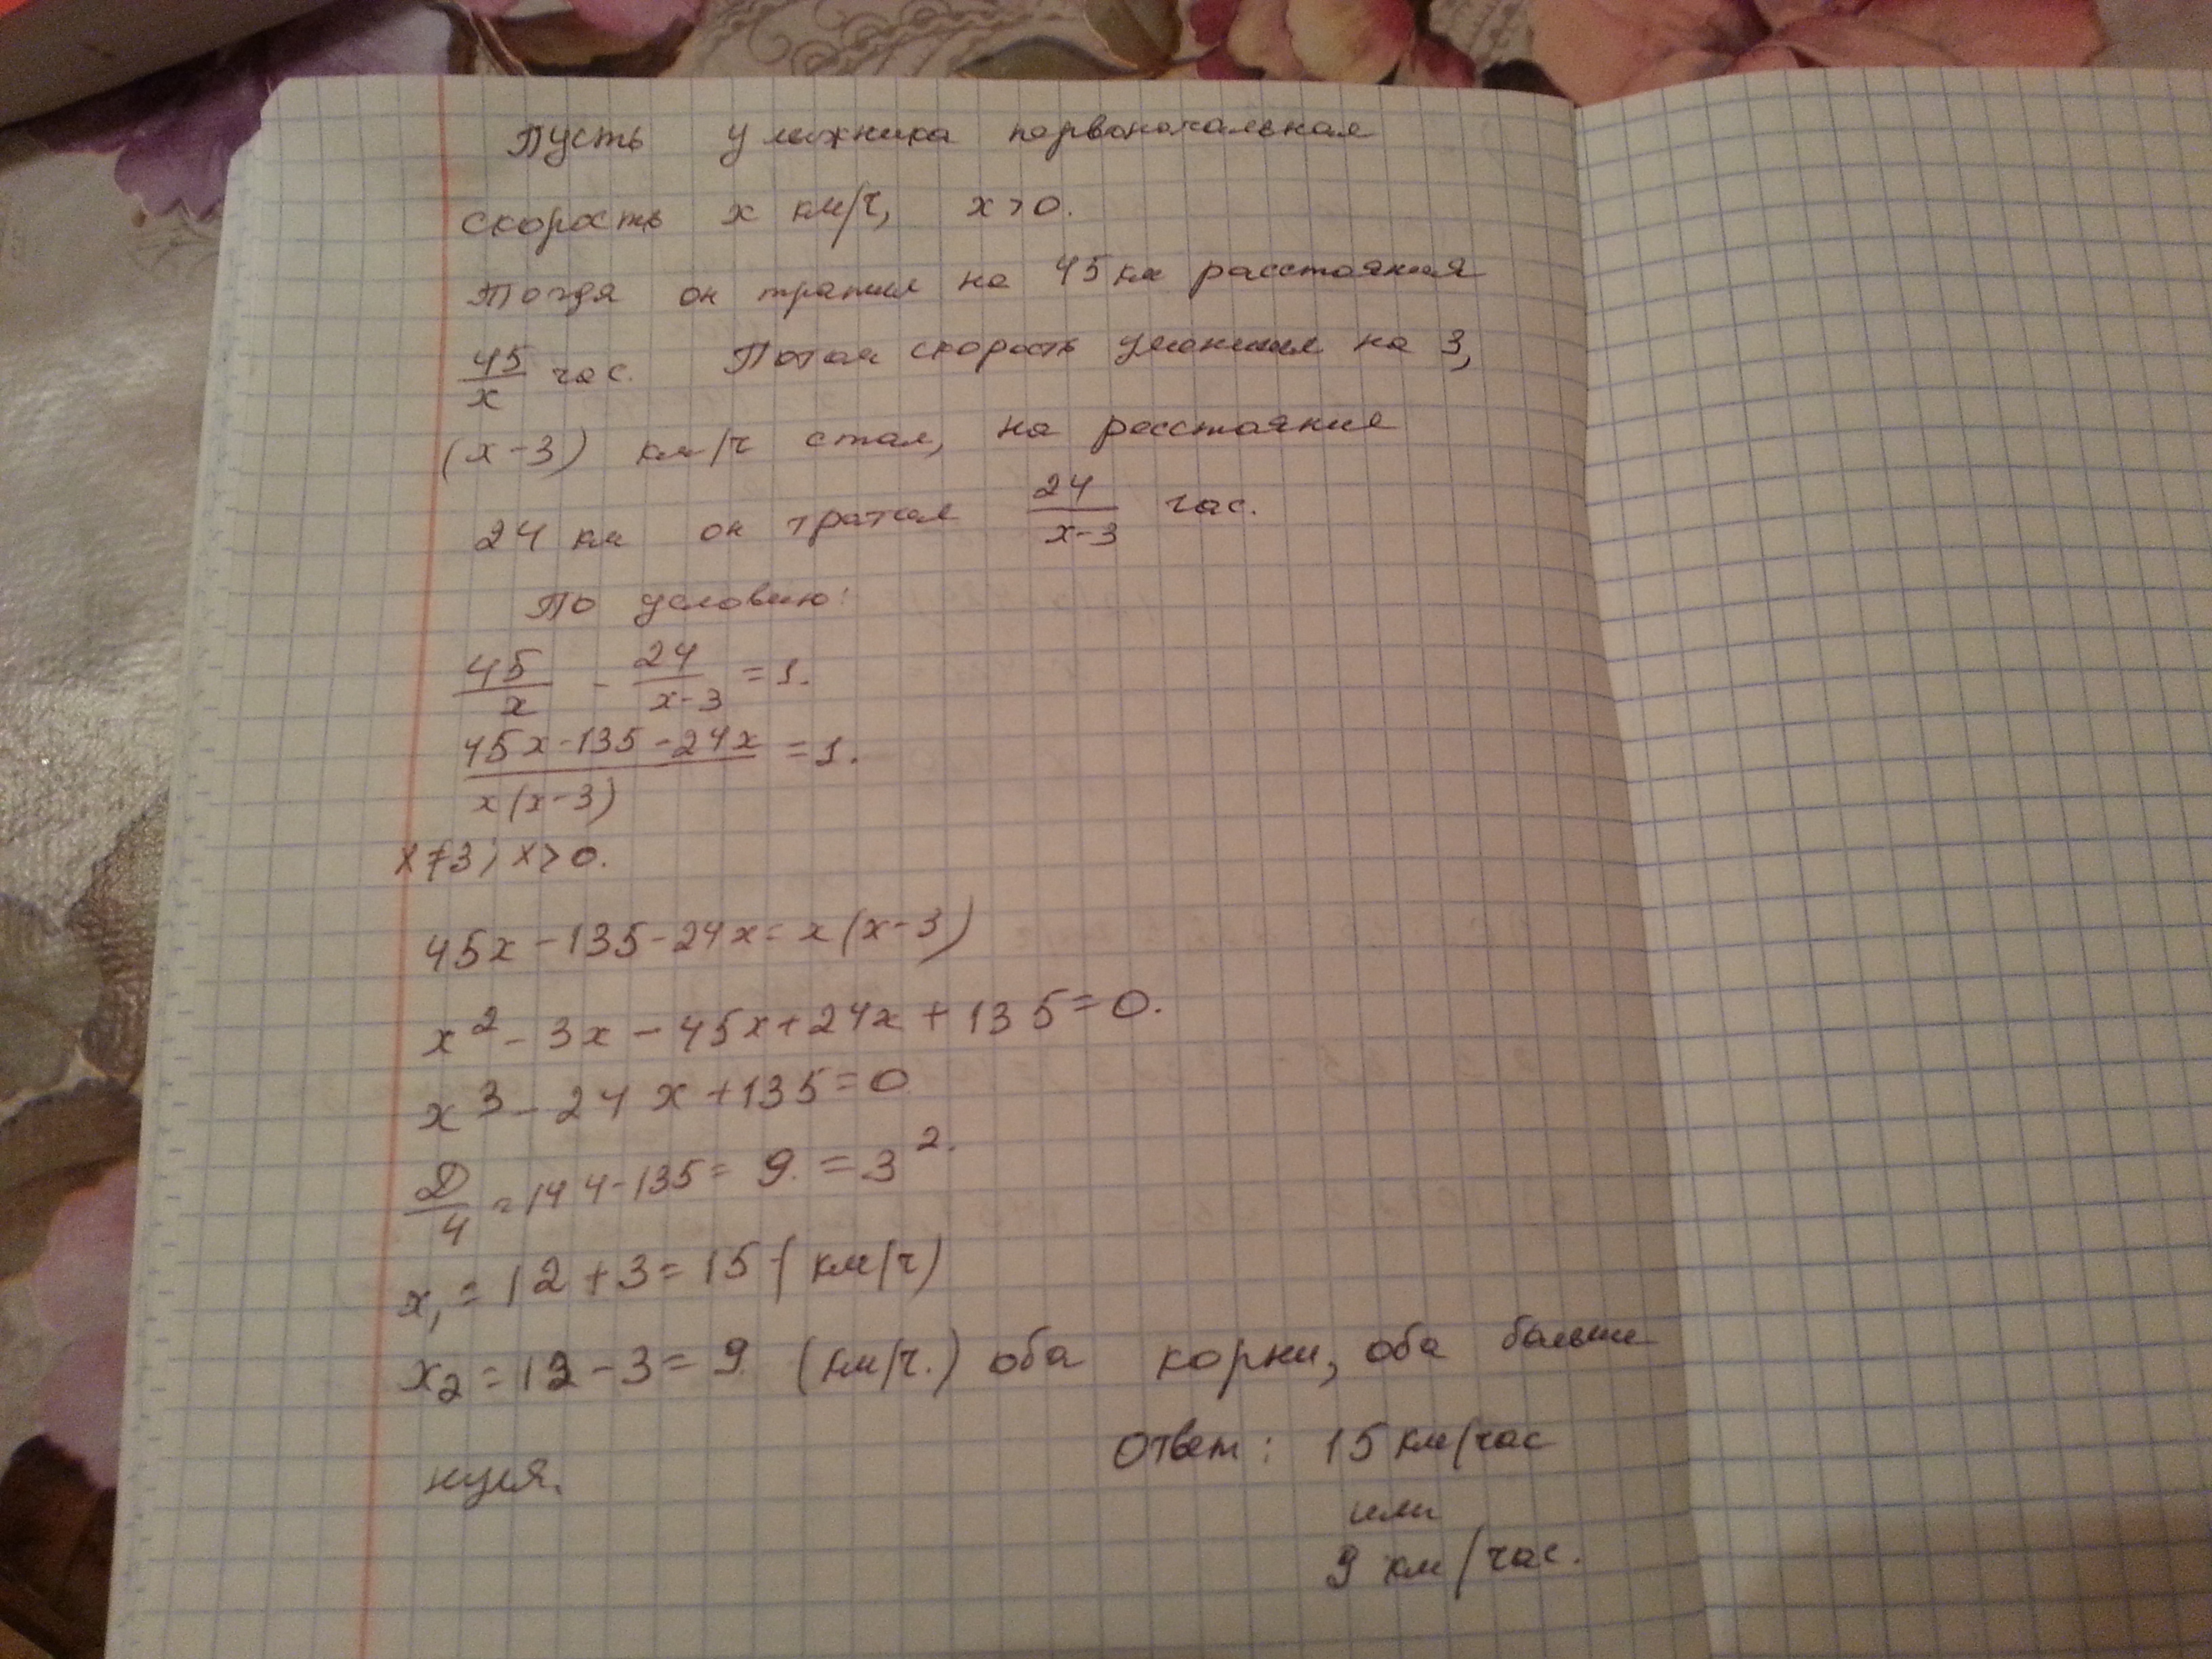 Пусть у лыжника первоначальная
скорость x км/ч, x > 0.
Тогда он тратил на 45 км расстояния
45/x час. Потом скорость уменьшил на 3,
(x-3) км/ч стал, на расстояние
24 км он тратил 24/(x-3) час.
По условию:
45/x - 24/(x-3) = 1.
(45x-135-24x)/(x(x-3)) = 1.
x≠3; x>0.
45x-135-24x=x(x-3)
x² - 3x - 45x+24x+135=0.
x³ - 24x+135=0
D/4 = 144-135= 9. = 3².
x₁ = 12+3=15 (км/ч)
x₂ = 12-3=9 (км/ч.) оба корни, оба больше
нуля.
Ответ: 15 км/час
или
9 км/час.